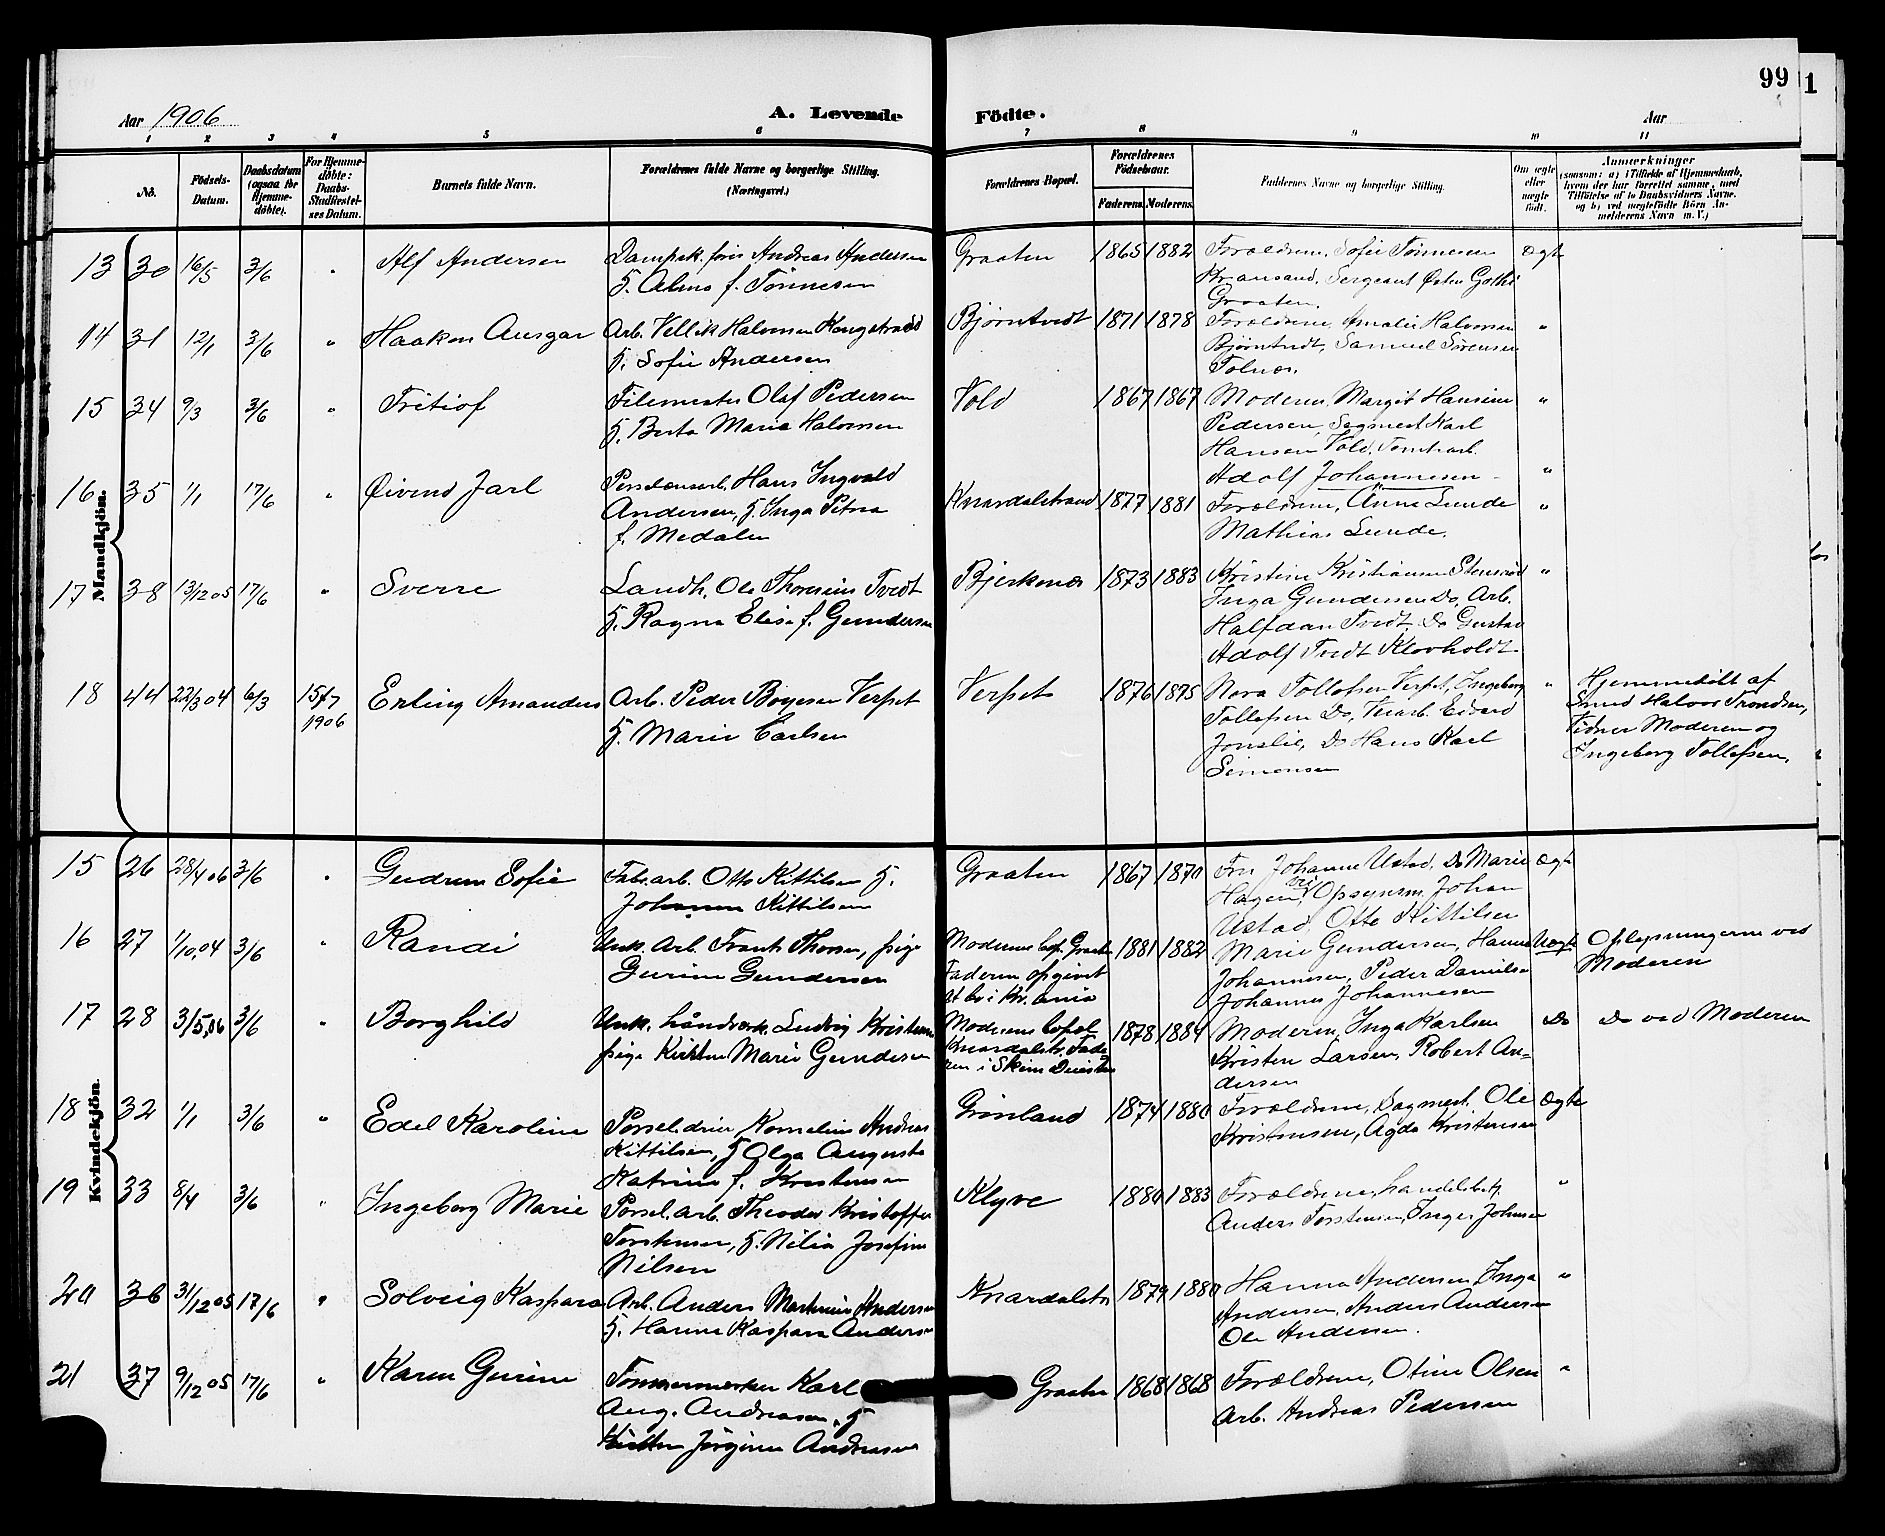 99
1
Aar 1906
A. Levende
Födte.
Aar
1 2 3 4 5 6 7 8 9 10 11
No.
Födsels-Datum.
Daabsdatum (ogsaa for Hjemme-döbte).
For Hjemme-döbte: Daabs-Stadfestel-ses Datum.
Barnets fulde Navn.
Forældrenes fulde Navne og borgerlige Stilling.
(Næringsvei.)
Forældrenes Bopæl.
Forældrenes Födselsaar.
Faderens. Moderens.
Faddernes Navne og borgerlig Stilling.
Om ægte eller uægte födt.
Anmærkninger
(saasom: a) i Tilfælde af Hjemmedaab, hvem der har forrettet samme, med Tilföielse af to Daabsvidners Navne. og b) ved uægtefödte Börn An-melderens Navn m. V.)
Mandkjön.
13 30 16/5 3/6 " Alf Andersen
Dampsk. förer Andreas Andersen
H. Alma f. Tönnesen
Graaten 1865 1882
Forældrene, Sofie Tönnesen
Kr.ansand, Sergeant Østen Gothe
Graaten.
Ægte
14 31 12/1 3/6 " Haakon Ansgar
Arb. Vellik Halvorsen
H. Sofie Andersen
Bjørntvedt 1871 1878
Forældrene, Amalie Halvorsen
Bjørntvedt, Samuel Sörensen
Tolnes.
"
15 34 9/3 3/6 " Fritiof
Filemester Olaf Pedersen
H. Berta Marie Halvorsen
Vold 1867 1867
Moderen, Margit Hansine
Pedersen, Sagmest. Karl
Hansen Vold, Tomtearb.
Adolf Johannesen
"
16 35 1/1 17/6 " Øivind Jarl
Hans Ingvald
Andersen, H. Inga Petra
f. Medalen
Knardalstrand 1877 1881
Forældrene, Anne Lunde
Mathias Lunde.
"
17 38 13/12 05 17/6 " Sverre
Landh. Ole Thorenius Tvedt
H. Ragna Elise f. Gundersen
Bjerkenes 1873 1883
Kristine Kristiansen Stensrød
Inga Gundersen Do, Arb.
Halfdan Tvedt Do Gustav
Adolf Tvedt Klovholdt
"
18 44 22/3 04 6/3 15/7 1906 Erling Amandus
Arb. Peder Boyesen Verpet
H. Marie Carlsen
Verpet 1876 1875
Nora Tollefsen Verpet, Ingeborg
Tollefsen Do, Edvard
Jonslie, Do Hans Karl
Simonsen
"
Hjemmedöbt af
Smed Halvor Trondsen,
Vidner Moderen og
Ingeborg Tollefsen.
Kvindekjön.
15 26 28/4 06 3/6 " Gudrun Sofie
Fabr.arb. Otto Kittilsen H.
Johanne Kittilsen
Graaten 1867 1870
Fru Johanne Ustad, Do Marie
Hagen, Opsynsm. Johan
Ustad, Otto Kittilsen
Ægte
16 27 1/10.04 3/6 " Randi
Unk. Arb. Frank Thorsen, pige
Gurine Gundersen
Moderens bop. Graaten
Faderen opgivet
at bo i Kr.ania
1881 1882
Marie Gundersen, Hanna
Johannesen, Peder Danielsen
Johannes Johannesen
Uægte
Oplysningerne ved
Moderen
17 28 3/5.06 3/6 " Borghild
Unk. håndverk. Ludvig Kristensen
pige Kirsten Marie Gundersen
Moderens bopel
Knardalstr. Fade-
ren i Skien
1878 1884
Moderen, Inga Karlsen
Kristen Larsen, Robert An-
dersen
Do
Do ved Moderen
18 32 1/1 3/6 " Edel Karoline
Kornelius Andreas
Kittilsen, H Olga Augusta
Katrine f. Kristensen
Grönland 1874 1880
Forældrene, Sagmest. Ole
Kristensen, Agda Kristensen
Ægte
19 33 8/4 3/6 " Ingeborg Marie
Porsel. arb. Theodor Kristoffer
Torstensen, H. Nilia Josefine
Nilsen
Klyve 1880 1883
Forældrene, handelsbetj.
Anders Torstensen, Inger Johnsen
"
20 36 31/12 05 17/6 " Solveig Kaspara
Arb. Anders Martinius Andersen
H. Hanna Kaspara Andersen
Knardalstr 1879 1880
Hanna Andersen, Inga
Andersen, Anders Andersen
Ole Andersen.
"
21 37 9/12 05 17/6 " Karen Gurine
Tömmermerker Karl
Aug. Andreasen, H
Kirsten Jörgine Andreasen
Graaten 1868 1868
Forældrene, Otine Olsen
Arb. Andreas Pedersen
"